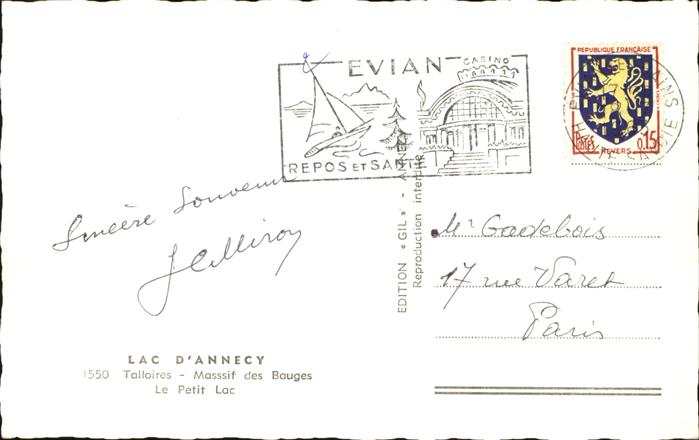 EVIAN
CASINO
REPOS ET SANTÉ
REPUBLIQUE FRANÇAISE
POSTES
0,15
NEVERS
Sincère souvenir
EDITION « GIL » - ANNECY
Reproduction interdite
Mr Gadebois
17 rue Varet
Paris
LAC D'ANNECY
1550 Talloires - Masssif des Bauges
Le Petit Lac